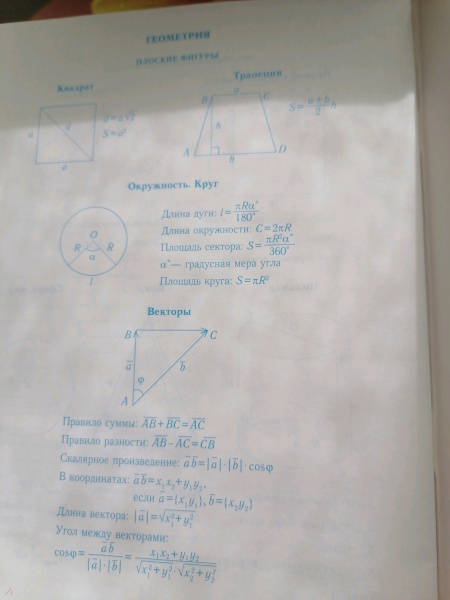 ГЕОМЕТРИЯ
ПЛОСКИЕ ФИГУРЫ
Квадрат
a
d
a
d=a√2
S=a²
Трапеция
a
B
C
h
A
D
b
S=(a+b)/2 h
Окружность. Круг
O
R
R
α
l
Длина дуги: l=πRα°/180°
Длина окружности: C=2πR
Площадь сектора: S=πR²α°/360°
α°— градусная мера угла
Площадь круга: S=πR²
Векторы
B
C
a̅
b̅
φ
A
Правило суммы: A̅B̅+B̅C̅=A̅C̅
Правило разности: A̅B̅−A̅C̅=C̅B̅
Скалярное произведение: a̅b̅=|a̅|·|b̅|·cosφ
В координатах: a̅b̅=x₁x₂+y₁y₂,
если a̅={x₁y₁}, b̅={x₂y₂}
Длина вектора: |a̅|=√(x₁²+y₁²)
Угол между векторами:
cosφ=a̅b̅/(|a̅|·|b̅|)=(x₁x₂+y₁y₂)/(√(x₁²+y₁²)·√(x₂²+y₂²))